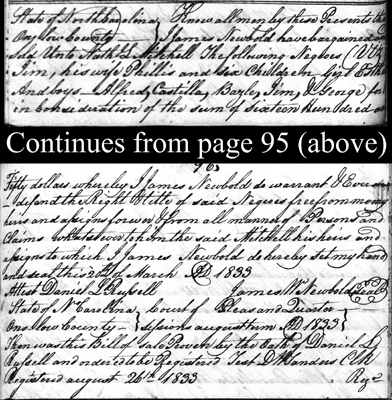 State of North Carolina } Know all men by these Present
Onslow County } James Newbold have bargained
Sold Unto Nathl. Mitchell The following Negroes (Viz)
Jim, his wife Phillis and six Children, Girl
And boys Alfred, Castilla, Jim, & George for
in consideration of the sum of Sixteen Hundred
Continues from page 95 (above)
96
Fifty dollars whereby I James Newbold do warrant &
defend the Right & title of said Negroes free from me my
heirs and assigns forever & from all manner of Persons
Claims whatsoever to him the said Mitchell his heirs an
assigns to which I James Newbold do hereby set my hand
and seal this 20th of March AD 1833
Attest Daniel L. Russell James W. Newbold Seal
State of No Carolina } Court of Pleas and Quarter
Onslow County } sessions august term AD 1833
Then was this Bill of Sale Proven by the Oath of Daniel L.
Russell and ordered to be Registered Test D W Sanders Clk
Registered august 26th 1833 Regr